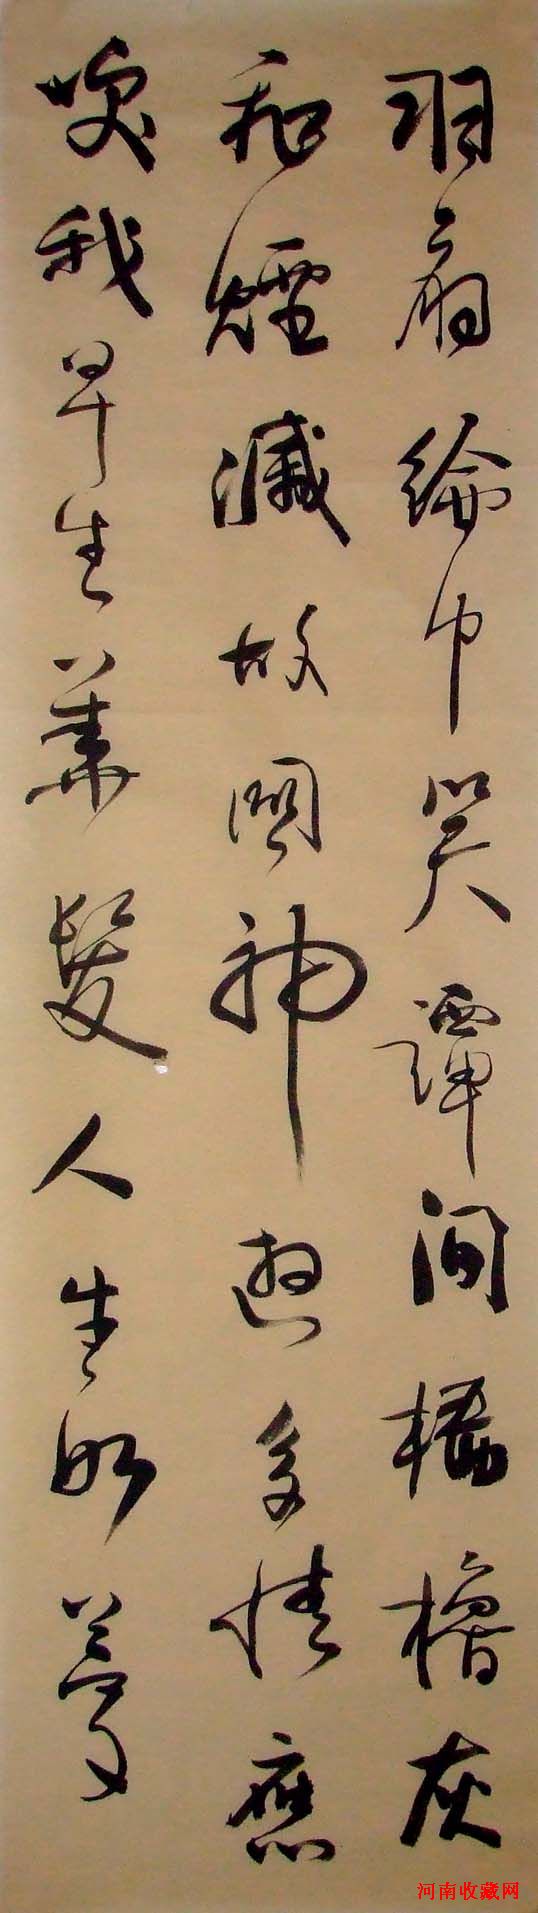 羽扇綸巾笑譚间檣櫓灰
飛煙滅故國神遊多情應
咲我早生華髮人生如夢
河南收藏网